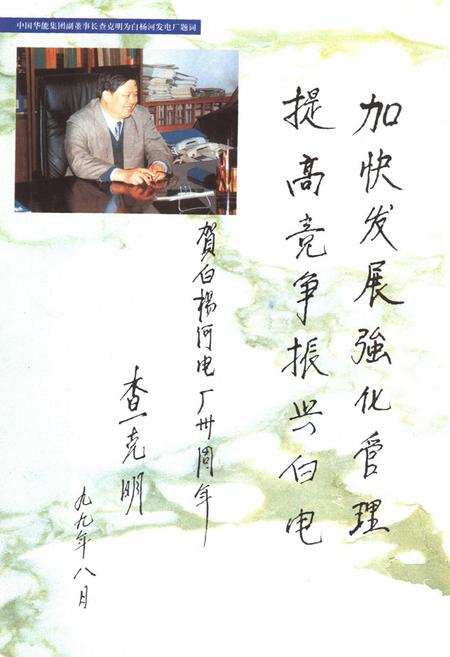 中国华能集团副董事长查克明为白杨河发电厂题词
加快发展強化管理
提高竞争振兴白电
賀白楊河电厂卅周年
查克明
九九年八月